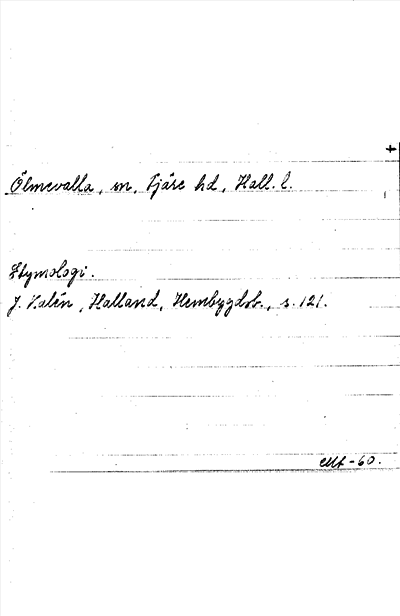 +
Ölmevalla, sn, Fjäre hd, Hall. l.
Etymologi.
J. Kalén, Halland, Hembygdsb., s. 121.
-60.